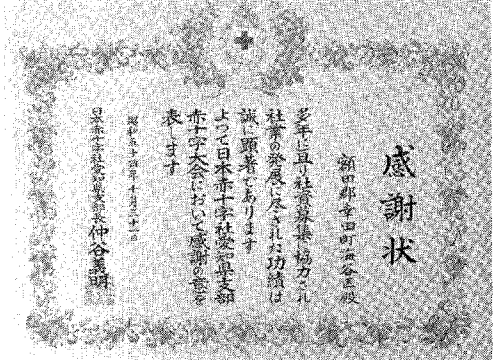 感謝状
額田郡幸田町海谷区殿
多年に亘り社資募集に協力され
社業の発展に尽された功績は
誠に顕著であります
よって日本赤十字社愛知県支部
赤十字大会において感謝の意を
表します
昭和五十四年十月三十一日
日本赤十字社愛知県支部長 仲谷義明